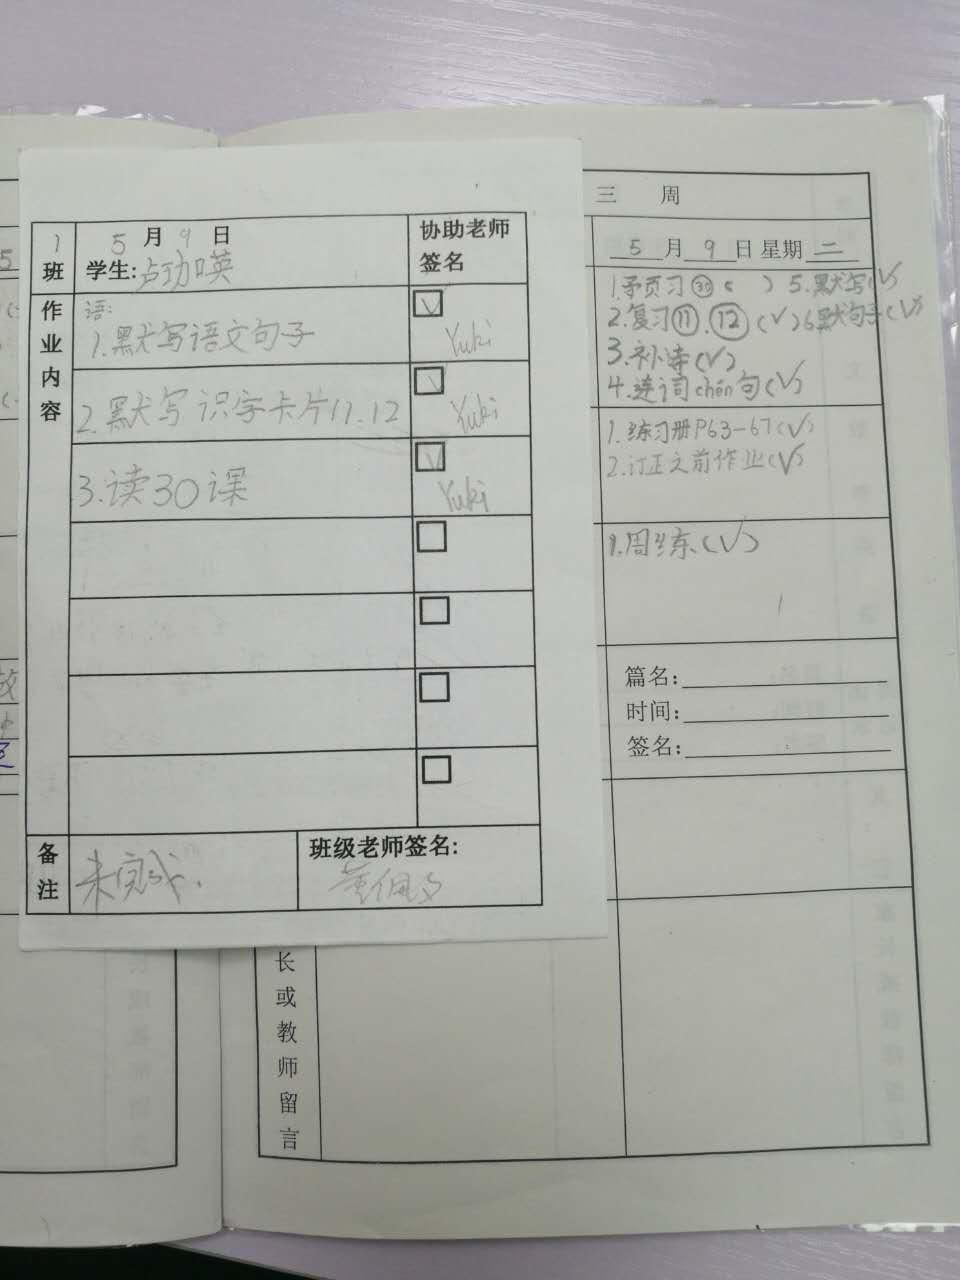 1
班
5月9日
学生:卢功瑛
协助老师
签名
作业内容
语:
1.默写语文句子
Yuki
2.默写识字卡片11.12
Yuki
3.读30课
Yuki
备注
未完成.
班级老师签名:
三 周
5月9日星期二
1.预习㉚( ) 5.默写(√)
2.复习⑪.⑫(√)6默句子(√)
3.补诗(√)
4.连词chén句(√)
1.练习册P63-67(√)
2.订正之前作业(√)
1.周练(√)
篇名:
时间:
签名:
长或教师留言